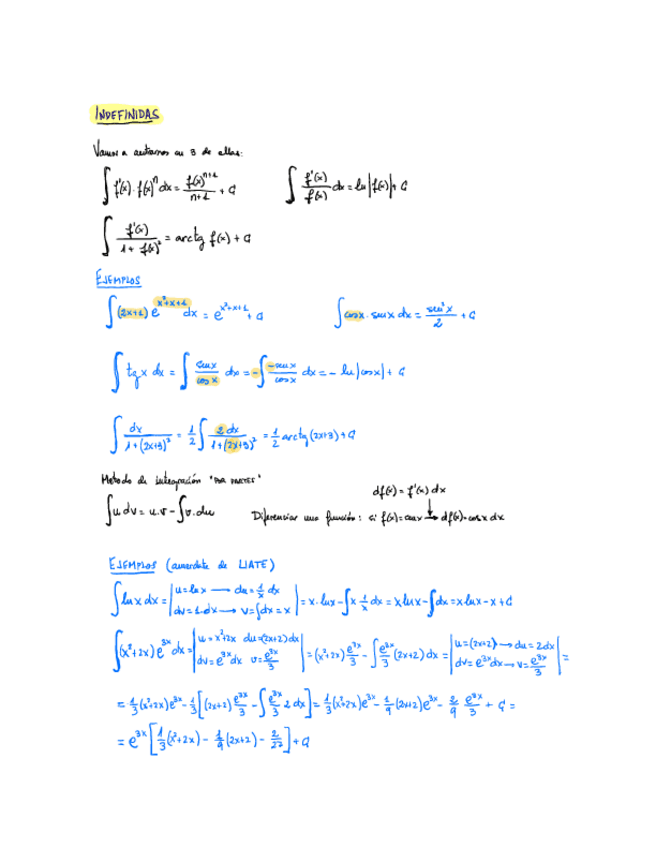 INDEFINIDAS
Vamos a centrarnos en 3 de ellas:
∫ f'(x)·f(x)^n dx = f(x)^(n+1)/(n+1) + C    ∫ f'(x)/f(x) dx = ln|f(x)| + C
∫ f'(x)/(1+f(x)^2) = arctg f(x) + C
EJEMPLOS
∫ (2x+1) e^(x²+x+1) dx = e^(x²+x+1) + C    ∫ cosx·senx dx = sen²x/2 + C
∫ tgx dx = ∫ senx/cosx dx = -∫ -senx/cosx dx = -ln|cosx| + C
∫ dx/(1+(2x+3)²) = 1/2 ∫ 2dx/(1+(2x+3)²) = 1/2 arctg(2x+3) + C
Metodo de integración "POR PARTES"
df(x) = f'(x) dx
∫u dv = u.v - ∫v.du    Diferenciar una función: si f(x)=senx → df(x)=cosx dx
EJEMPLOS (acuerdate de LIATE)
∫ lnx dx = | u=lnx → du=1/x dx
dv=1.dx → v=∫dx=x | = x·lnx - ∫x 1/x dx = xlnx - ∫dx = xlnx - x + C
∫(x²+2x)e^(3x) dx = | u=x²+2x du=(2x+2)dx
dv=e^(3x)dx v=e^(3x)/3 | = (x²+2x) e^(3x)/3 - ∫ e^(3x)/3 (2x+2) dx = | u=(2x+2) → du=2dx
dv=e^(3x)dx → v=e^(3x)/3 | =
= 1/3 (x²+2x)e^(3x) - 1/3 [(2x+2) e^(3x)/3 - ∫ e^(3x)/3 2dx] = 1/3 (x²+2x)e^(3x) - 1/9 (2x+2)e^(3x) - 2/9 e^(3x)/3 + C =
= e^(3x) [1/3 (x²+2x) - 1/9 (2x+2) - 2/27] + C